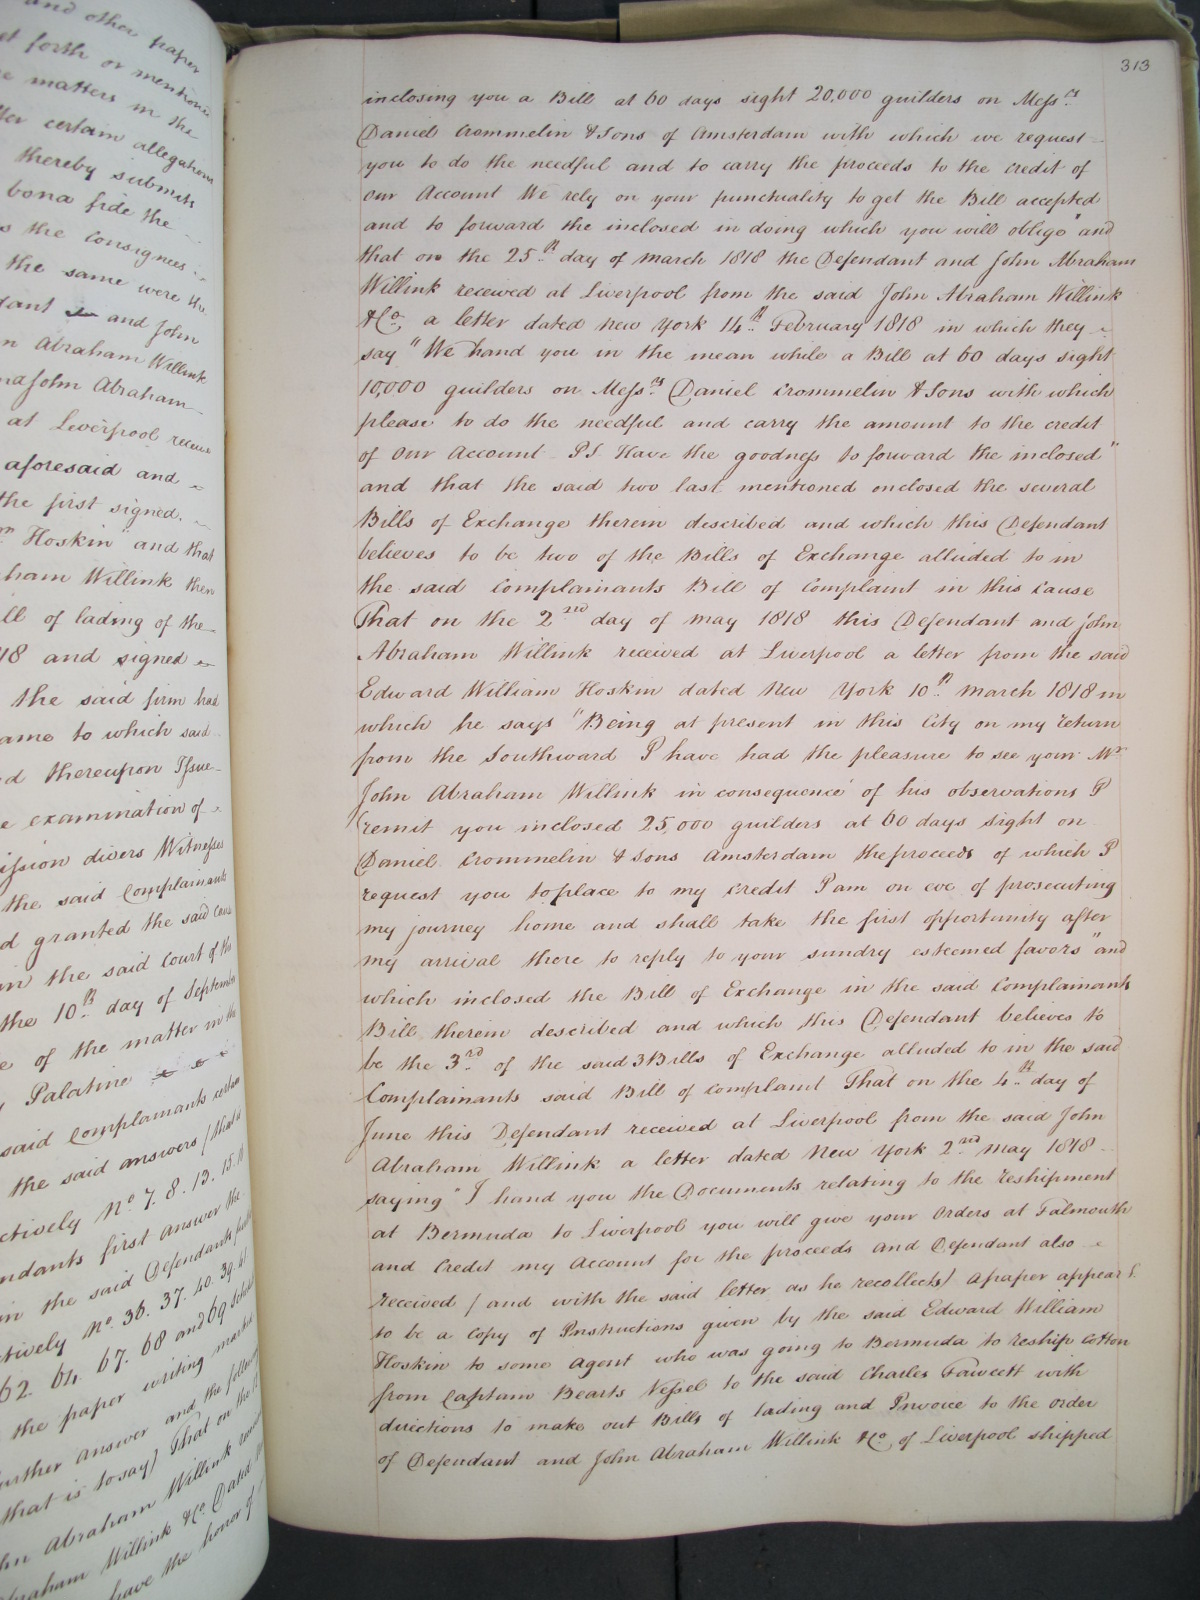 and other paper
set forth or mentioned
matters in the
certain allegations
thereby submits
bona fide the
the consignees
the same were the
and John
Abraham Willink
John Abraham
at Liverpool
aforesaid and
the first signed.
Hoskin" and that
Abraham Willink then
bill of lading of the
and signed
the said firm had
same to which said
thereupon Issue
examination of
divers Witnesses
the said Complainants
granted the said
in the said Court of the
the 10th day of September
of the matter in the
Palatine
said Complainants
the said answers (that is
No. 7. 8. 13. 15.
first answer the
in the said Defendants
No. 36. 37. 40. 39.
62. 64. 67. 68 and 69
the paper writing marked
further answer and the following
that is to say) That on the
Abraham Willink
Abraham Willink & Co. Dated
have the honor of
313
inclosing you a Bill at 60 days sight 20,000 guilders on Messrs.
Daniel Crommelin & Sons of Amsterdam with which we request
you to do the needful and to carry the proceeds to the credit of
our Account We rely on your punctuality to get the Bill accepted
and to forward the inclosed in doing which you will oblige" and
that on the 25th day of March 1818 the Defendant and John Abraham
Willink received at Liverpool from the said John Abraham Willink
& Co. a letter dated New York 14th February 1818 in which they
say "We hand you in the mean while a Bill at 60 days sight
10,000 guilders on Messrs. Daniel Crommelin & Sons with which
please to do the needful and carry the amount to the credit
of our Account P.S. Have the goodness to forward the inclosed"
and that the said two last mentioned enclosed the several
Bills of Exchange therein described and which this Defendant
believes to be two of the Bills of Exchange alluded to in
the said Complainants Bill of Complaint in this Cause
That on the 2nd day of May 1818 this Defendant and John
Abraham Willink received at Liverpool a letter from the said
Edward William Hoskin dated New York 10th March 1818 in
which he says "Being at present in this City on my return
from the Southward I have had the pleasure to see your Mr
John Abraham Willink in consequence of his observations I
remit you inclosed 25,000 guilders at 60 days sight on
Daniel Crommelin & Sons Amsterdam the proceeds of which I
request you to place to my credit I am on eve of prosecuting
my journey home and shall take the first opportunity after
my arrival there to reply to your sundry esteemed favors" and
which inclosed the Bill of Exchange in the said Complainants
Bill therein described and which this Defendant believes to
be the 3rd of the said 3 Bills of Exchange alluded to in the said
Complainants said Bill of Complaint That on the 4th day of
June this Defendant received at Liverpool from the said John
Abraham Willink a letter dated New York 2nd May 1818
saying "I hand you the Documents relating to the reshipment
at Bermuda to Liverpool you will give your Orders at Falmouth
and Credit my Account for the proceeds and Defendant also
received (and with the said letter as he recollects) a paper appears
to be a Copy of Instructions given by the said Edward William
Hoskin to some Agent who was going to Bermuda to reship Cotton
from Captain Bearts Vessel to the said Charles Fawcett with
directions to make out Bills of lading and Invoice to the order
of Defendant and John Abraham Willink & Co. of Liverpool shipped